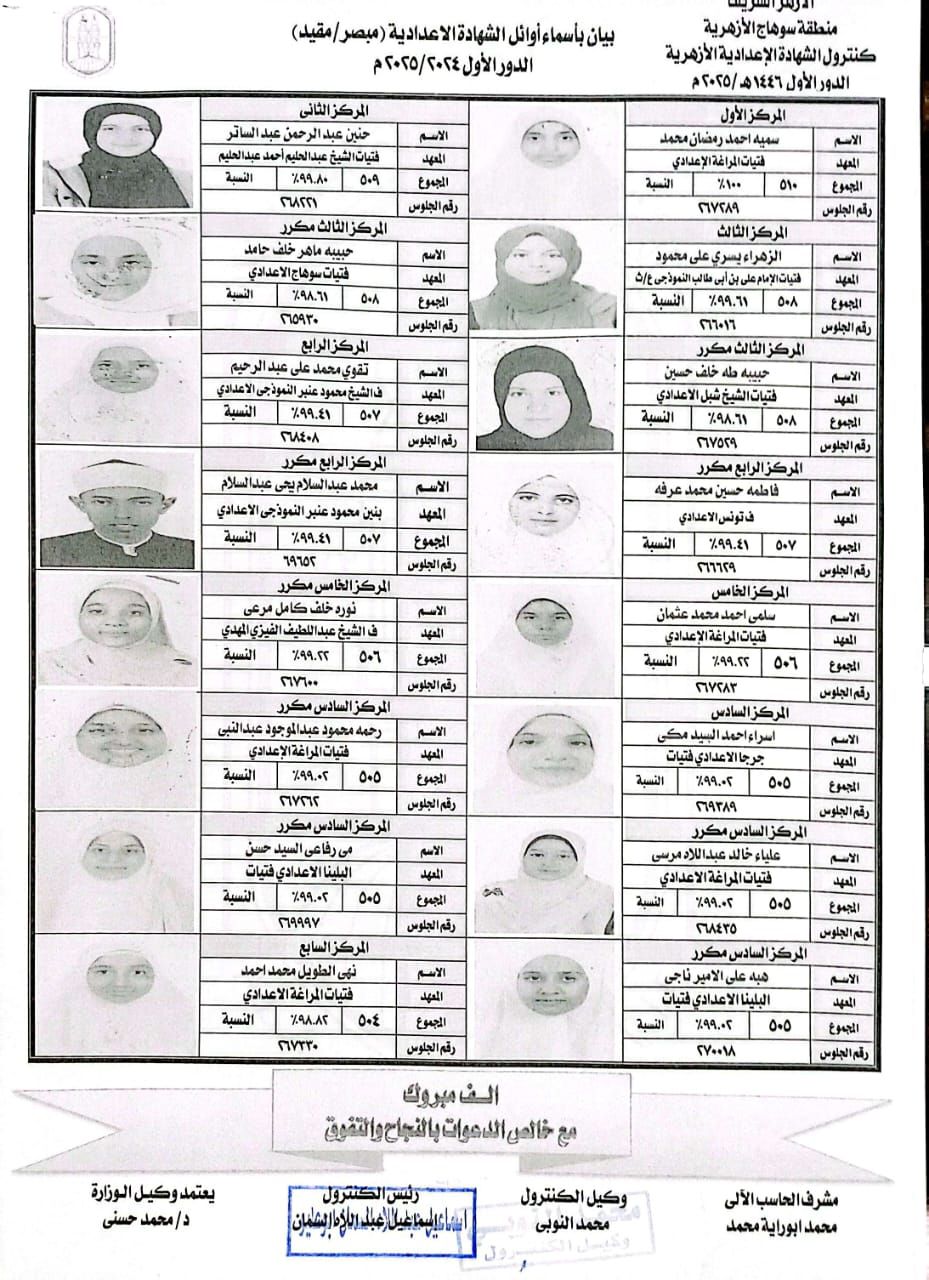 الأزهر الشريف
منطقة سوهاج الأزهرية
كنترول الشهادة الإعدادية الأزهرية
الدور الأول ١٤٤٦هـ/٢٠٢٥م
بيان بأسماء أوائل الشهادة الاعدادية (مبصر/مقيد)
الدور الأول ٢٠٢٥/٢٠٢٤م
المركز الأول
الاسم سميه احمد رمضان محمد
المعهد فتيات المراغة الإعدادي
المجموع ٥١٠ ١٠٠٪ النسبة
رقم الجلوس ٢٦٧٢٨٩
المركز الثانى
الاسم حنين عبد الرحمن عبد الساتر
المعهد فتيات الشيخ عبدالحليم أحمد عبدالحليم
المجموع ٥٠٩ ٩٩.٨٠٪ النسبة
رقم الجلوس ٢٦٨٢٢١
المركز الثالث
الاسم الزهراء يسري على محمود
المعهد فتيات الإمام على بن أبى طالب النموذجى ع/ث
المجموع ٥٠٨ ٩٩.٦١٪ النسبة
رقم الجلوس ٢٦٦٠١٦
المركز الثالث مكرر
الاسم حبيبه ماهر خلف حامد
المعهد فتيات سوهاج الاعدادي
المجموع ٥٠٨ ٩٨.٦١٪ النسبة
رقم الجلوس ٢٦٥٩٣٠
المركز الثالث مكرر
الاسم حبيبه طه خلف حسين
المعهد فتيات الشيخ شبل الاعدادي
المجموع ٥٠٨ ٩٨.٦١٪ النسبة
رقم الجلوس ٢٦٧٥٢٩
المركز الرابع
الاسم تقوي محمد على عبد الرحيم
المعهد ف الشيخ محمود عنبر النموذجى الاعدادي
المجموع ٥٠٧ ٩٩.٤١٪ النسبة
رقم الجلوس ٢٦٨٤٠٨
المركز الرابع مكرر
الاسم فاطمه حسين محمد عرفه
المعهد ف تونس الاعدادي
المجموع ٥٠٧ ٩٩.٤١٪ النسبة
رقم الجلوس ٢٦٦٦٢٩
المركز الرابع مكرر
الاسم محمد عبدالسلام يحى عبدالسلام
المعهد بنين محمود عنبر النموذجى الاعدادي
المجموع ٥٠٧ ٩٩.٤١٪ النسبة
رقم الجلوس ٦٩٦٥٢
المركز الخامس
الاسم سلمى احمد محمد عثمان
المعهد فتيات المراغة الإعدادي
المجموع ٥٠٦ ٩٩.٢٢٪ النسبة
رقم الجلوس ٢٦٧٢٨٣
المركز الخامس مكرر
الاسم نوره خلف كامل مرعى
المعهد ف الشيخ عبداللطيف الفيزي المهدي
المجموع ٥٠٦ ٩٩.٢٢٪ النسبة
رقم الجلوس ٢٦٧٦٠٠
المركز السادس
الاسم اسراء احمد السيد مكى
المعهد جرجا الاعدادي فتيات
المجموع ٥٠٥ ٩٩.٠٢٪ النسبة
رقم الجلوس ٢٦٩٣٨٩
المركز السادس مكرر
الاسم رحمه محمود عبدالموجود عبدالنبى
المعهد فتيات المراغة الإعدادي
المجموع ٥٠٥ ٩٩.٠٢٪ النسبة
رقم الجلوس ٢٦٧٢٦٢
المركز السادس مكرر
الاسم علياء خالد عبداللاه مرسى
المعهد فتيات المراغة الاعدادي
المجموع ٥٠٥ ٩٩.٠٢٪ النسبة
رقم الجلوس ٢٦٨٤٣٥
المركز السادس مكرر
الاسم مى رفاعى السيد حسن
المعهد البلينا الاعدادي فتيات
المجموع ٥٠٥ ٩٩.٠٢٪ النسبة
رقم الجلوس ٢٦٩٩٩٧
المركز السادس مكرر
الاسم هبه على الامير ناجى
المعهد البلينا الاعدادي فتيات
المجموع ٥٠٥ ٩٩.٠٢٪ النسبة
رقم الجلوس ٢٧٠٠١٨
المركز السابع
الاسم نهى الطويل محمد احمد
المعهد فتيات المراغة الاعدادي
المجموع ٥٠٤ ٩٨.٨٢٪ النسبة
رقم الجلوس ٢٦٧٣٣٠
الـف مبروك
مع خالص الدعوات بالنجاح والتفوق
مشرف الحاسب الآلى
محمد ابوراية محمد
وكيل الكنترول
محمد النوبى
رئيس الكنترول
يعتمد وكيل الوزارة
د/ محمد حسنى
وكيل الكنترول